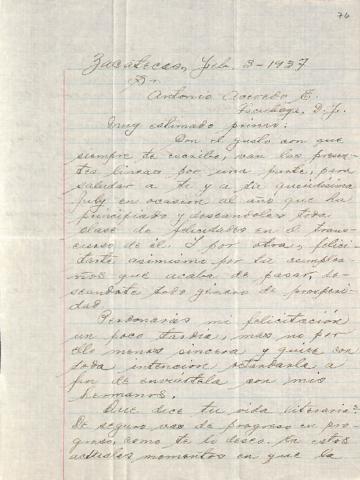 76
Zacatecas, Feb. 3-1937
Sr.
Antonio Acevedo E.
Tacubaya, D.F.
Muy estimado primo:
Con el gusto con que
siempre te escribo, van las presen-
tes lineas por una parte, para
saludar a ti y a tu queridisima
July en ocasión al año que ha
principiado y deseandoles toda
clase de felicidades en el trans-
curso de él. I por otra, felici-
tarte asimismo por tu cumplea-
ños que acaba de pasar, de-
seandote todo género de prosperi-
dad.
Perdonarás mi felicitación
un poco tardia, mas no por
ello menos sincera y quise con
toda intención retardarla a
fin de enviártela con mis
hermanos.
Que dice tu vida literaria?
De seguro vas de progreso en pro-
greso, como te lo deseo. En estos
actuales momentos en que la